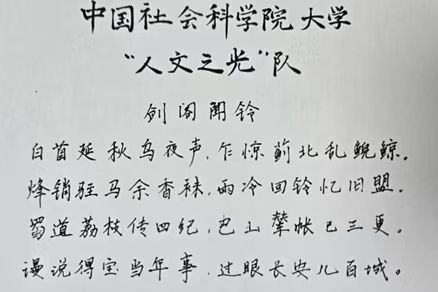 中国社会科学院大学
“人文之光”队
剑阁闻铃
白首延秋乌夜声，乍惊蓟北乱鲵鲸。
烽销驻马余香袜，雨冷回铃忆旧盟。
蜀道荔枝传四纪，巴山辇帐已三更。
谩说得宝当年事，过眼长安几百城。